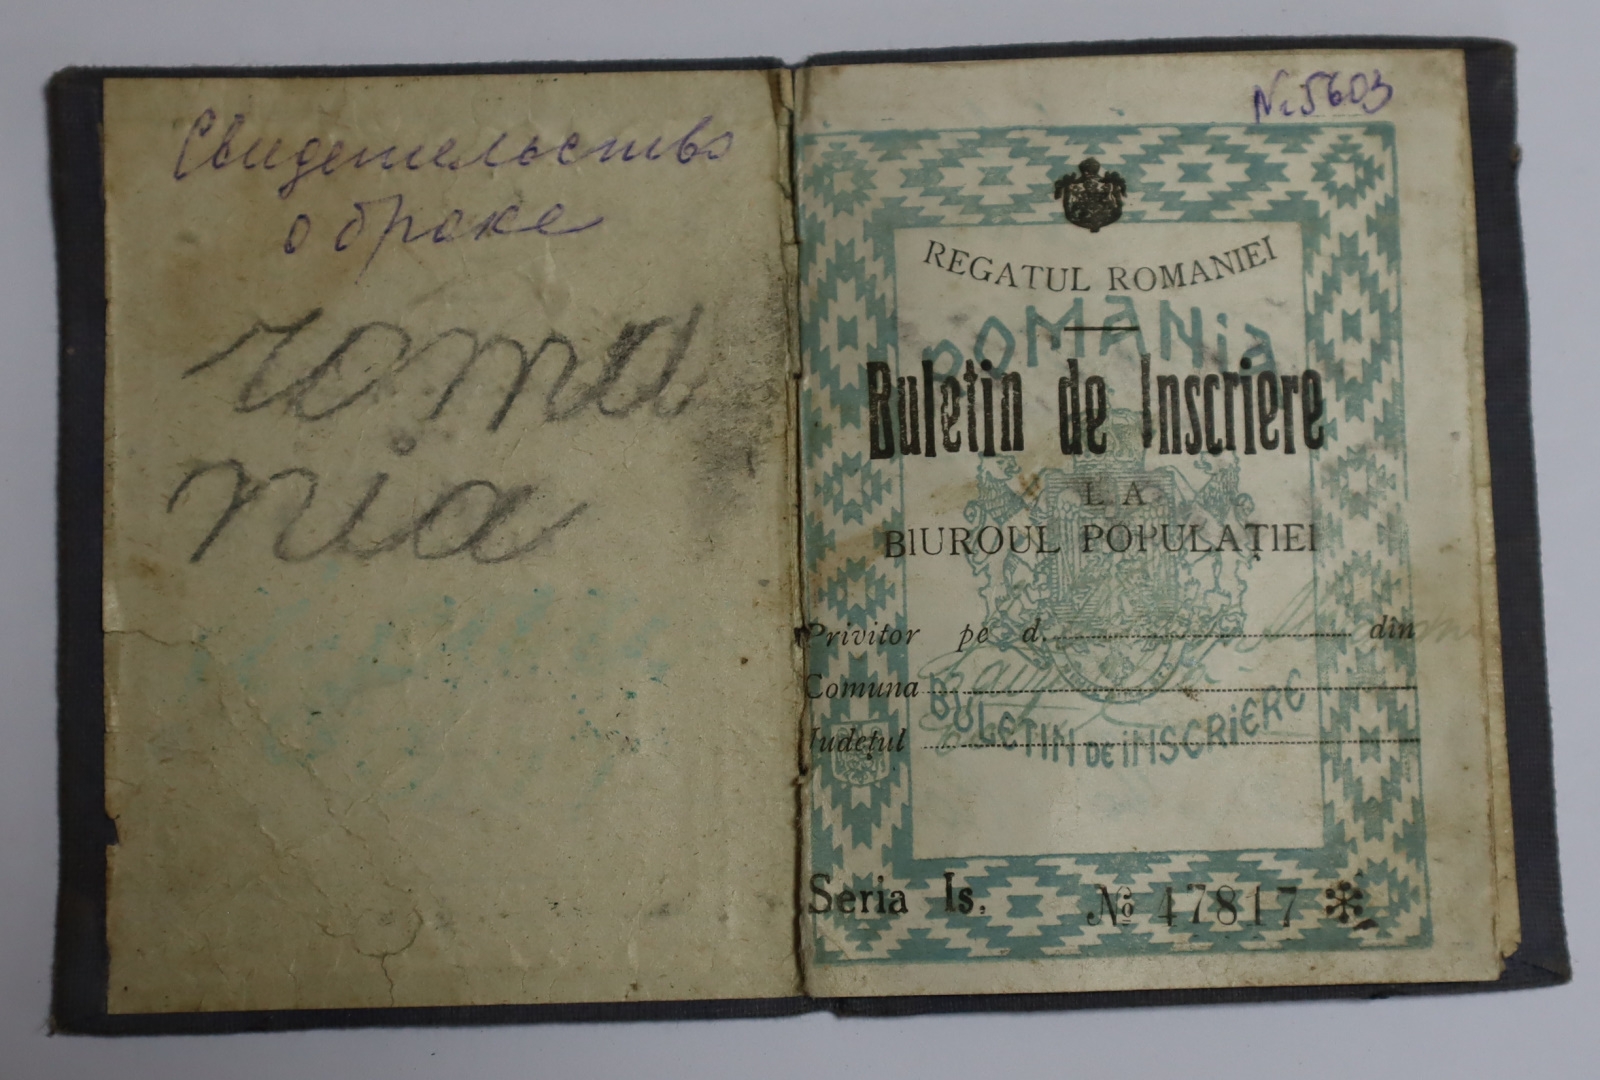 Свидетельство
о браке
roma
nia
№ 5603
REGATUL ROMANIEI
ROMANiA
Buletin de Inscriere
LA
BIUROUL POPULAȚIEI
Privitor pe d. din
Comuna
Județul
BULETIN DE iNSCRiERE
Seria Is. № 47817 *